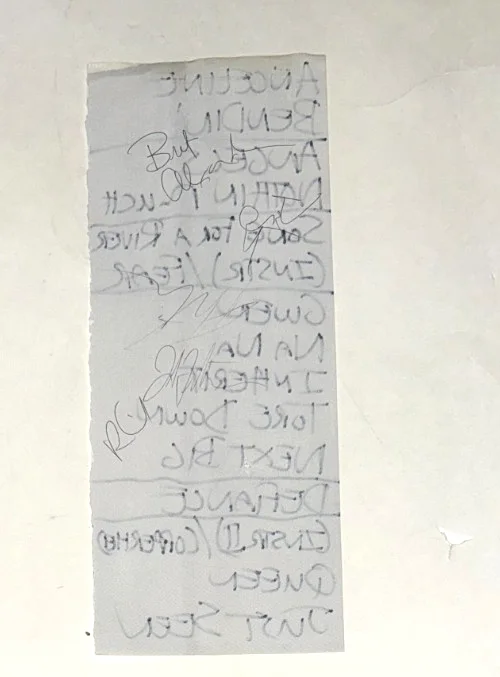 ANGELINE
BENDIN'
ANGEL
NOTHIN MUCH
SONG FOR A RIVER
(INSTR) / FEAR
GWEN
NA NA
INHERIT
TORE DOWN
NEXT BIG
DEFIANCE
(INSTR II) / COPPERHED
QUEEN
JUST SEEN
Bret
RC